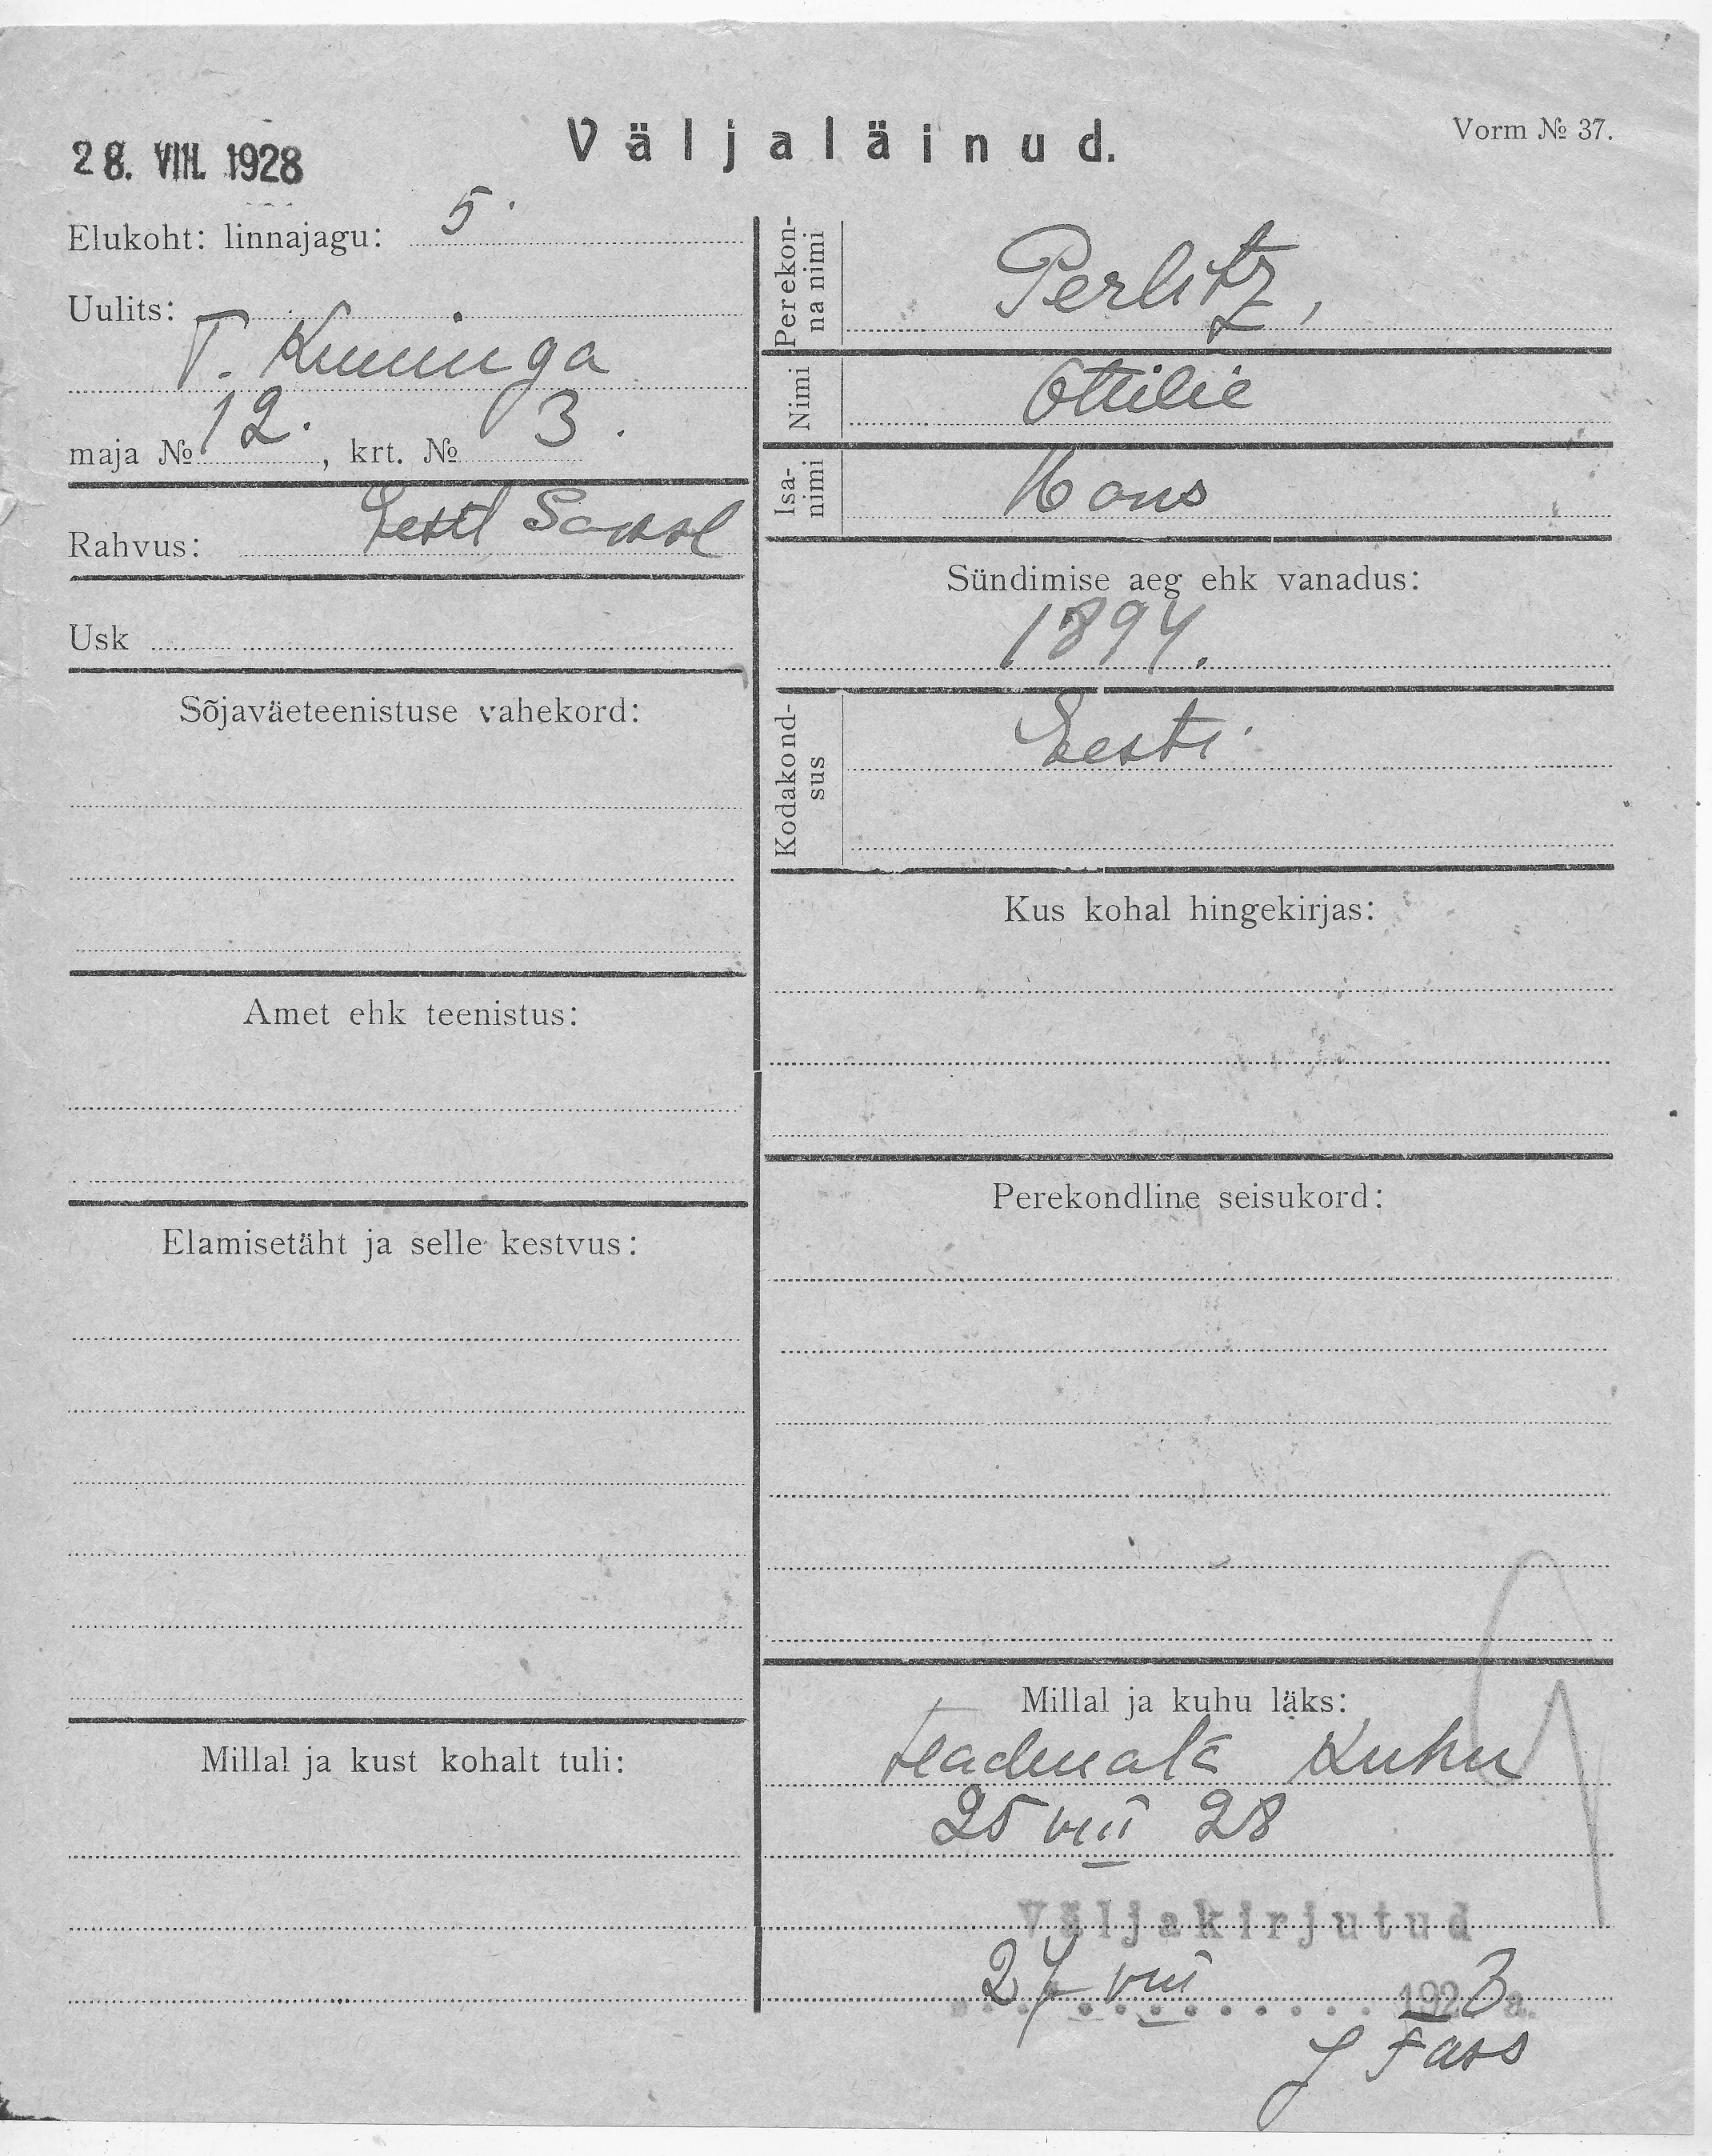 28. VIII. 1928
Väljaläinud.
Vorm № 37.
Elukoht: linnajagu: 5.
Uulits:
T. Kuninga
maja № 12. , krt. № 3.
Rahvus: Eesti Saksl
Usk
Sõjaväeteenistuse vahekord:
Amet ehk teenistus:
Elamisetäht ja selle kestvus:
Millal ja kust kohalt tuli:
Perekon-
na nimi
Perlitz,
Nimi
Ottilie
Isa-
nimi
Hans
Sündimise aeg ehk vanadus:
1894.
Kodakond-
sus
Eesti
Kus kohal hingekirjas:
Perekondline seisukord:
Millal ja kuhu läks:
teadmata kuhu
25 VIII 28
Väljakirjutud
27 VIII 1928 a.
J Fass